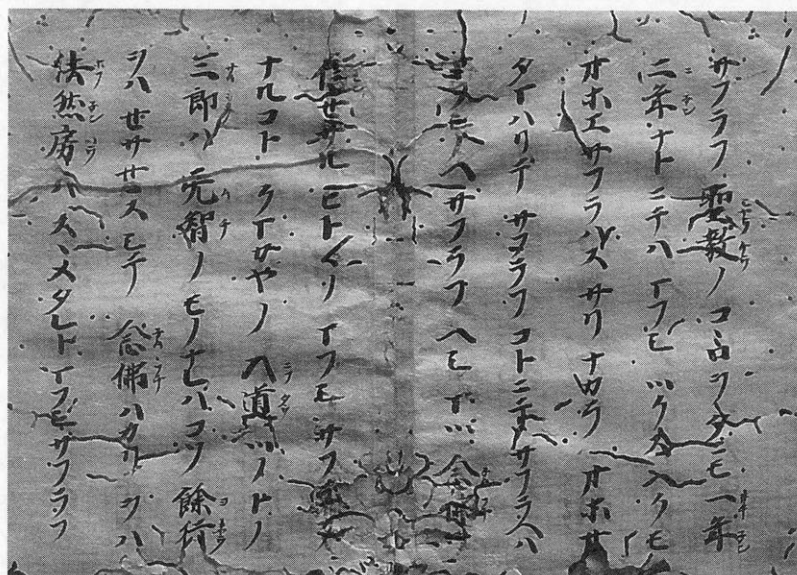 サフラフ 聖教ノコヽロヲタニモ一年
二年ナトニテハ マフシ ツクスヘクモ
オホエサフラハス サリナカラ オホセ
タマハリテ サフラフ コトニテ サフラヘハ
ヘサフラフ ヘシ 念佛
信セサル ヒト〱ノ マフシ サフ
ナルコト クマカヤノ 入道 ツノトノ
三郎ハ 无智ノ モノナレハコソ 餘行
ヲハ セサセスシテ 念佛ハカリヲハ
法然房ハスヽメタレト マフシサフラフ